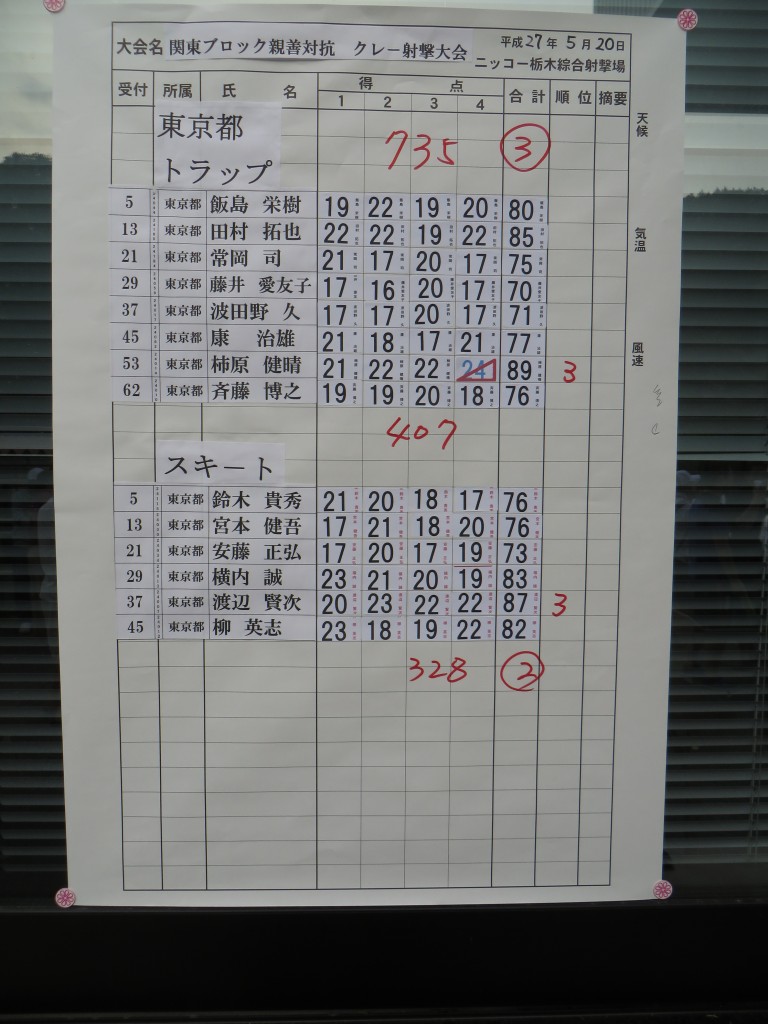 大会名 関東ブロック親善対抗 クレー射撃大会 平成27年5月20日
ニッコー栃木綜合射撃場
受付 所属 氏名 得点 合計 順位 摘要
1 2 3 4
天候
気温
風速
東京都
トラップ
735 ③
5 東京都 飯島 栄樹 19 22 19 20 80
13 東京都 田村 拓也 22 22 19 22 85
21 東京都 常岡 司 21 17 20 17 75
29 東京都 藤井 愛友子 17 16 20 17 70
37 東京都 波田野 久 17 17 20 17 71
45 東京都 康 治雄 21 18 17 21 77
53 東京都 柿原 健晴 21 22 22 24 89 3
62 東京都 斉藤 博之 19 19 20 18 76
407
スキート
5 東京都 鈴木 貴秀 21 20 18 17 76
13 東京都 宮本 健吾 17 21 18 20 76
21 東京都 安藤 正弘 17 20 17 19 73
29 東京都 横内 誠 23 21 20 19 83
37 東京都 渡辺 賢次 20 23 22 22 87 3
45 東京都 柳 英志 23 18 19 22 82
328 ②